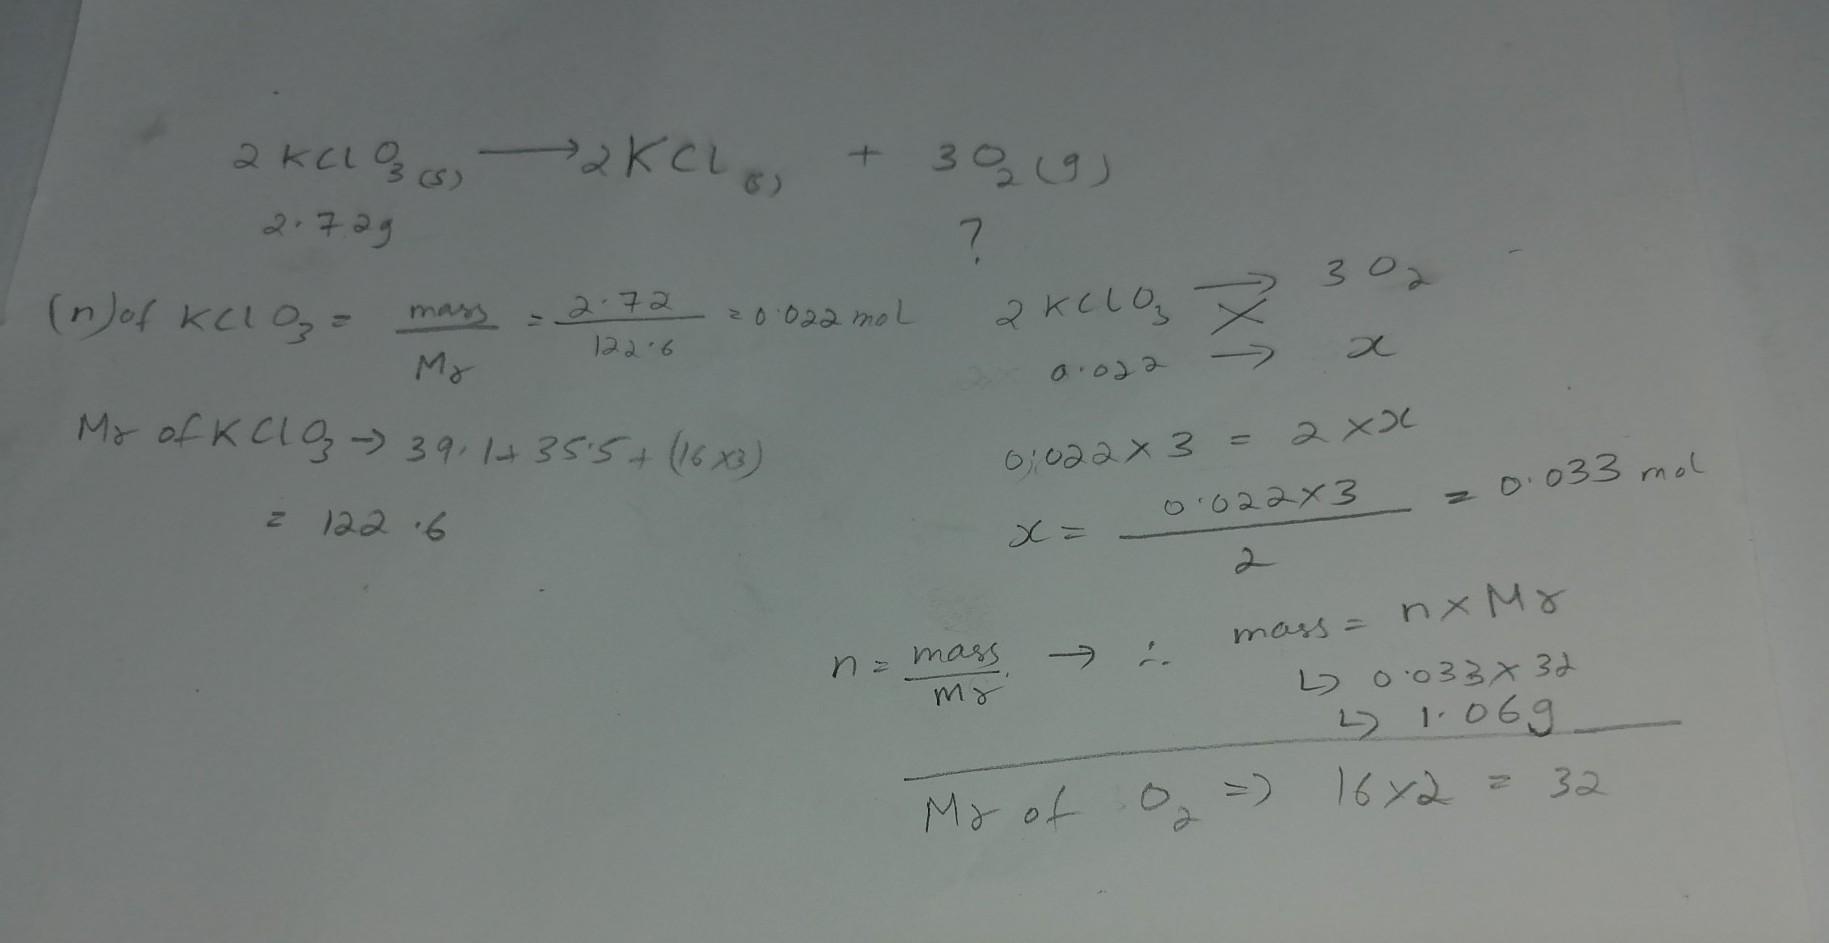 2KClO₃(s) ⟶ 2KCl(s) + 3O₂(g)
2.72g ?
(n) of KClO₃ = mass/Mr = 2.72/122.6 = 0.022 mol
Mr of KClO₃ → 39.1 + 35.5 + (16×3)
= 122.6
2KClO₃ → 3O₂
0.022 → x
0.022 × 3 = 2 × x
x = 0.022×3/2 = 0.033 mol
n = mass/mr → ∴ mass = n × Mr
↳ 0.033 × 32
↳ 1.06g
Mr of O₂ ⇒ 16×2 = 32